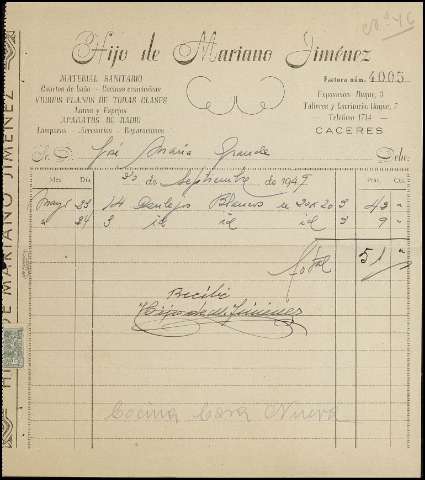 Nº 46
Hijo de Mariano Jiménez
MATERIAL SANITARIO
Cuartos de baño - Cocinas económicas
VIDRIOS PLANOS DE TODAS CLASES
Lunas y Espejos
APARATOS DE RADIO
Lámparas - Accesorios - Reparaciones
Factura núm. 4005
Exposición: Duque, 3
Talleres y Carpintería: Duque, 7
Teléfono 1714
CACERES
Sr. D. José María Grande Debe:
de Septiembre de 1949
Mes Día Ptas. Cts.
23 14 Azulejos Blancos de 20x20 3 42 "
" 24 3 id id id 3 9 "
Total 51 "
Recibí
Hijo de M. Jiménez
Cocina Casa Nueva
DE MARIANO JIMENEZ